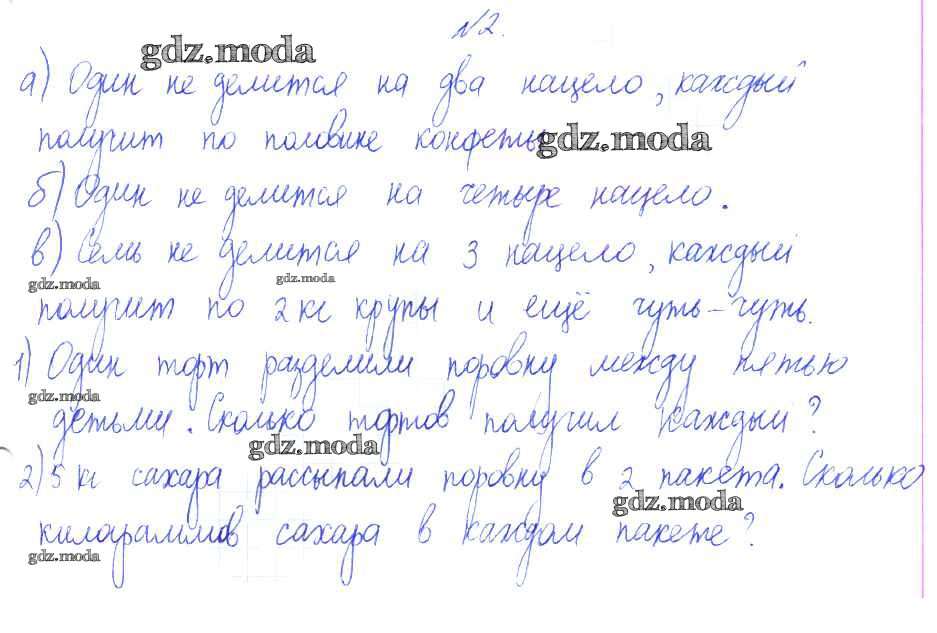 №2.
gdz.moda
а) Один не делится на два нацело, каждый
получит по половине конфеты
gdz.moda
б) Один не делится на четыре нацело.
в) Семь не делится на 3 нацело, каждый
gdz.moda
gdz.moda
получит по 2 кг крупы и ещё чуть-чуть.
1) Один торт разделили поровну между пятью
gdz.moda
детьми. Сколько тортов получил каждый?
gdz.moda
2) 5 кг сахара рассыпали поровну в 2 пакета. Сколько
gdz.moda
килораммов сахара в каждом пакете?
gdz.moda